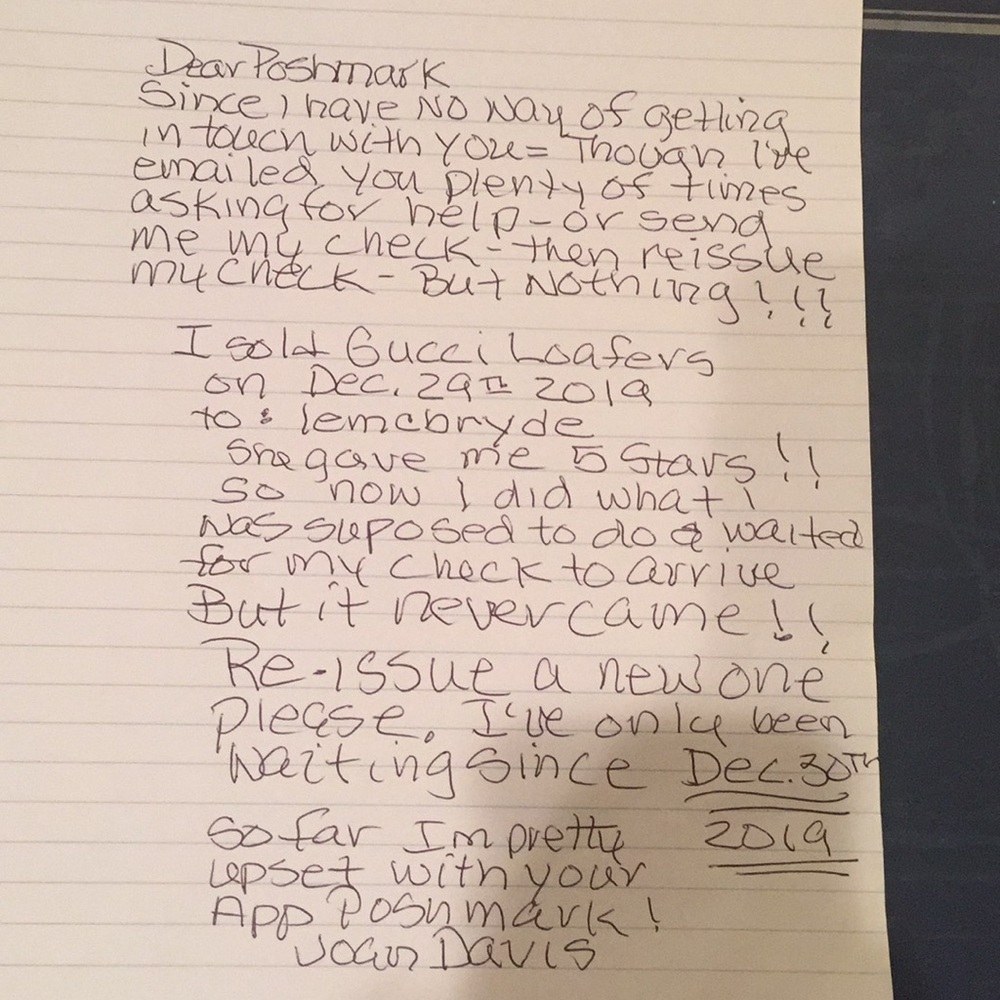 Dear Poshmark
Since I have NO Way of getting
in touch with you = Though I've
emailed you plenty of times
asking for help - or send
me my check - then reissue
my check - But Nothing!!!
I sold Gucci Loafers
on Dec. 29TH 2019
to: lemcbryde
She gave me 5 Stars!!
So now I did what I
was suposed to do & waited
for my check to arrive
But it never came!!
Re-issue a new one
please. I've only been
Waiting Since Dec. 30TH
2019
So far Im pretty
upset with your
App Poshmark!
Joan Davis